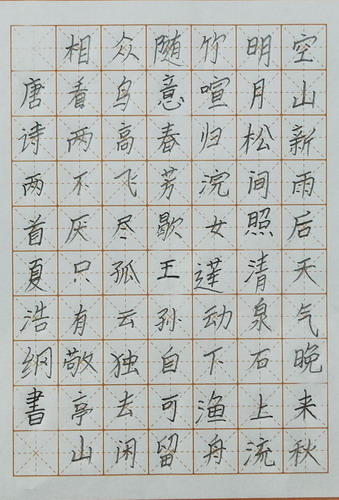 空山新雨后天气晚来秋
明月松间照清泉石上流
竹喧归浣女蓮动下渔舟
随意春芳歇王孙自可留
众鸟高飞尽孤云独去闲
相看两不厌只有敬亭山
唐诗两首夏浩纲書